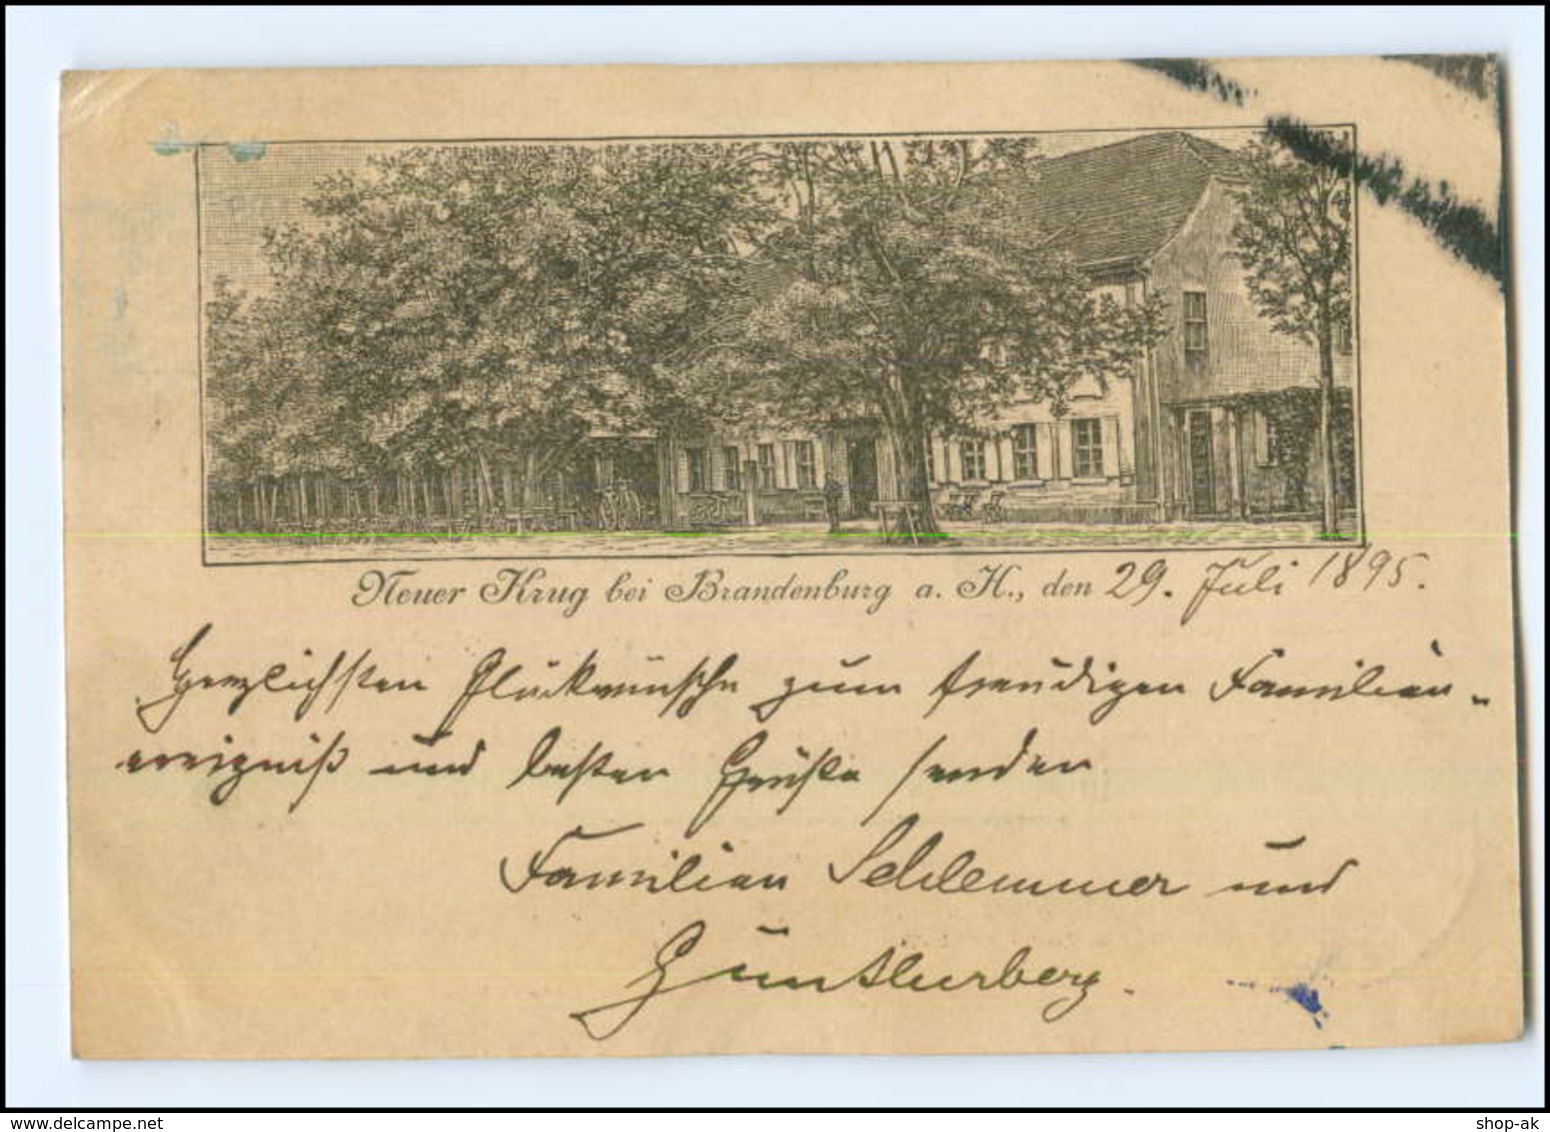 Neuer Krug bei Brandenburg a. H., den 29. Juli 1895.
Herzlichsten Glückwünsche zum freudigen Familien-
ereigniß und besten Grüße senden
Familien Schlemmer und
Güntherberg.
shop-ak